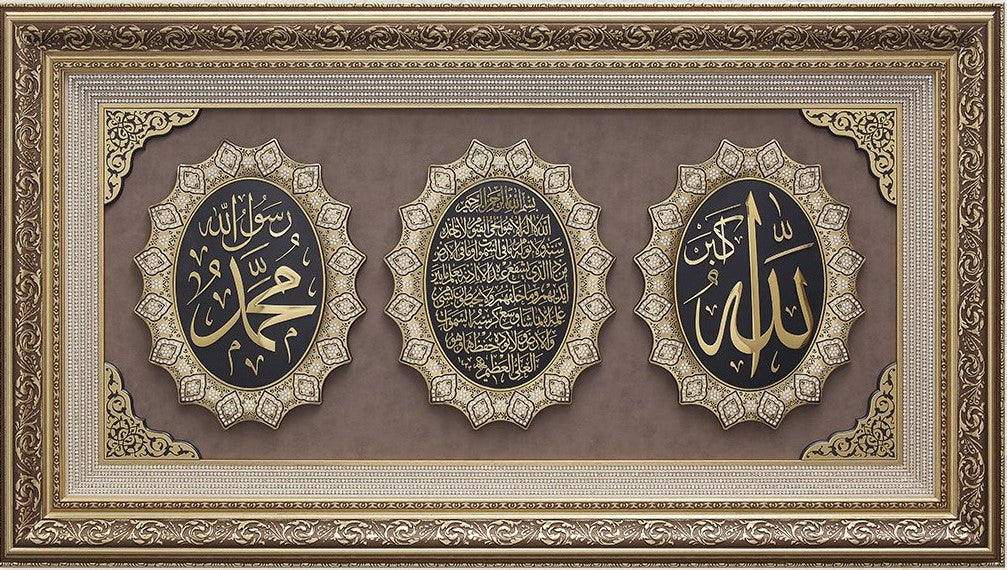 الله اكبر
بسم الله الرحمن الرحيم
الله لا اله الا هو الحي القيوم لا تاخذه
سنة ولا نوم له ما في السموات وما في الارض
من ذا الذي يشفع عنده الا باذنه يعلم ما بين
ايديهم وما خلفهم ولا يحيطون بشئ من
علمه الا بما شاء وسع كرسيه السموات
والارض ولا يؤده حفظهما وهو
العلي العظيم
رسول الله
محمد